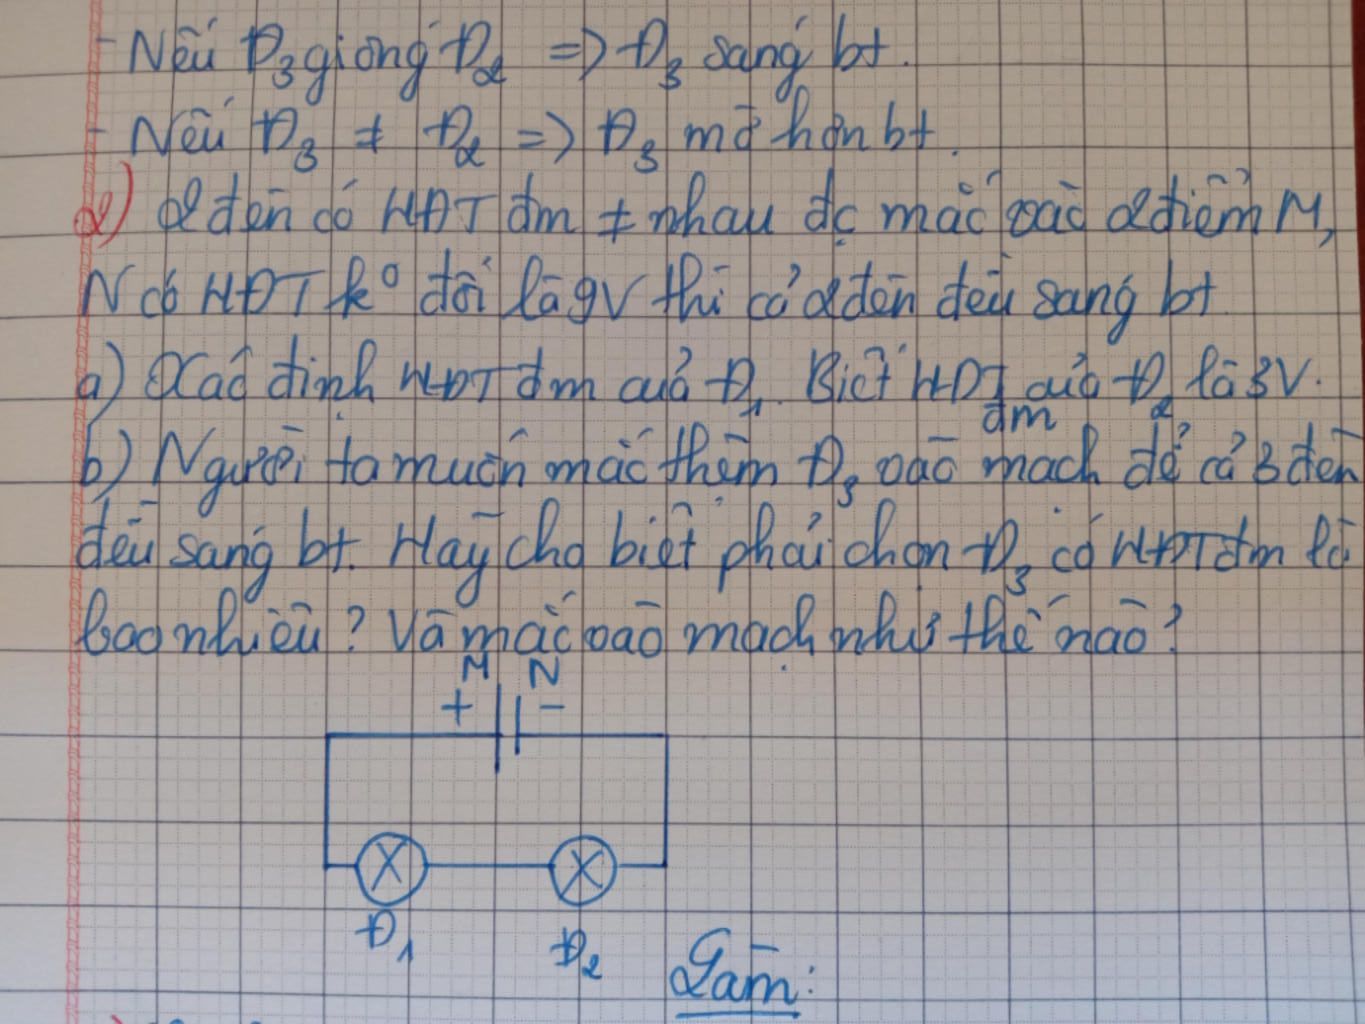 - Nếu Đ3 giống Đ2 => Đ3 sáng bt.
- Nếu Đ3 ≠ Đ2 => Đ3 mờ hơn bt.
2) 2 đèn có HĐT đm ≠ nhau đc mắc vào 2 điểm M,
N có HĐT k° đổi là 9V thì cả 2 đèn đều sáng bt
a) Xác định HĐT đm của Đ1. Biết HĐT đm của Đ2 là 3V.
b) Người ta muốn mắc thêm Đ3 vào mạch để cả 3 đèn
đều sáng bt. Hãy cho biết phải chọn Đ3 có HĐT đm là
bao nhiêu? Và mắc vào mạch như thế nào?
M N
+ -
Đ1 Đ2
Làm: